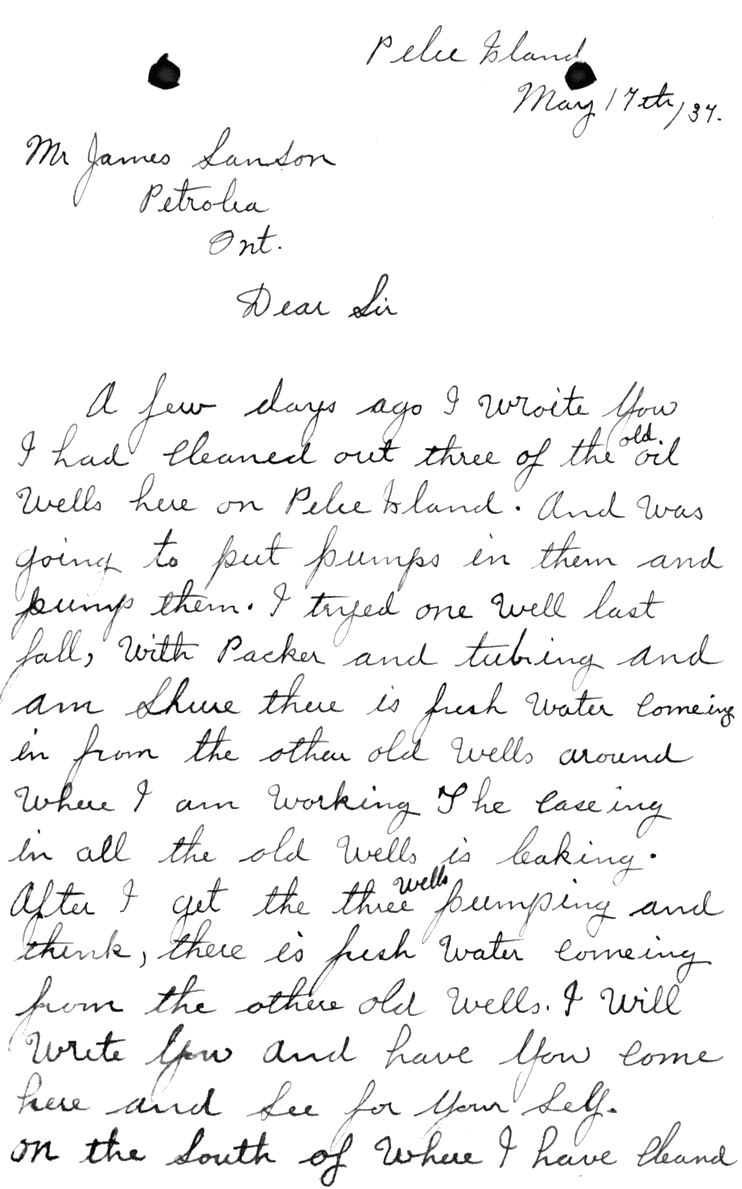 Pelee Island
May 17th/37.
Mr James Sanson
Petrolia
Ont.
Dear Sir
A few days ago I wroite You
I had Cleaned out three of the old oil
Wells here on Pelee Island. And was
going to put pumps in them and
pump them. I tryed one Well last
fall, With Packer and tubring and
am Shure there is fresh Water Comeing
in from the other old Wells around
Where I am Working The Caseing
in all the old Wells is leaking.
After I get the three Wells pumping and
think, there is fresh Water Comeing
from the othere old Wells. I Will
Write You and have You Come
here and See for Your Self.
on the South of Where I have Cleand